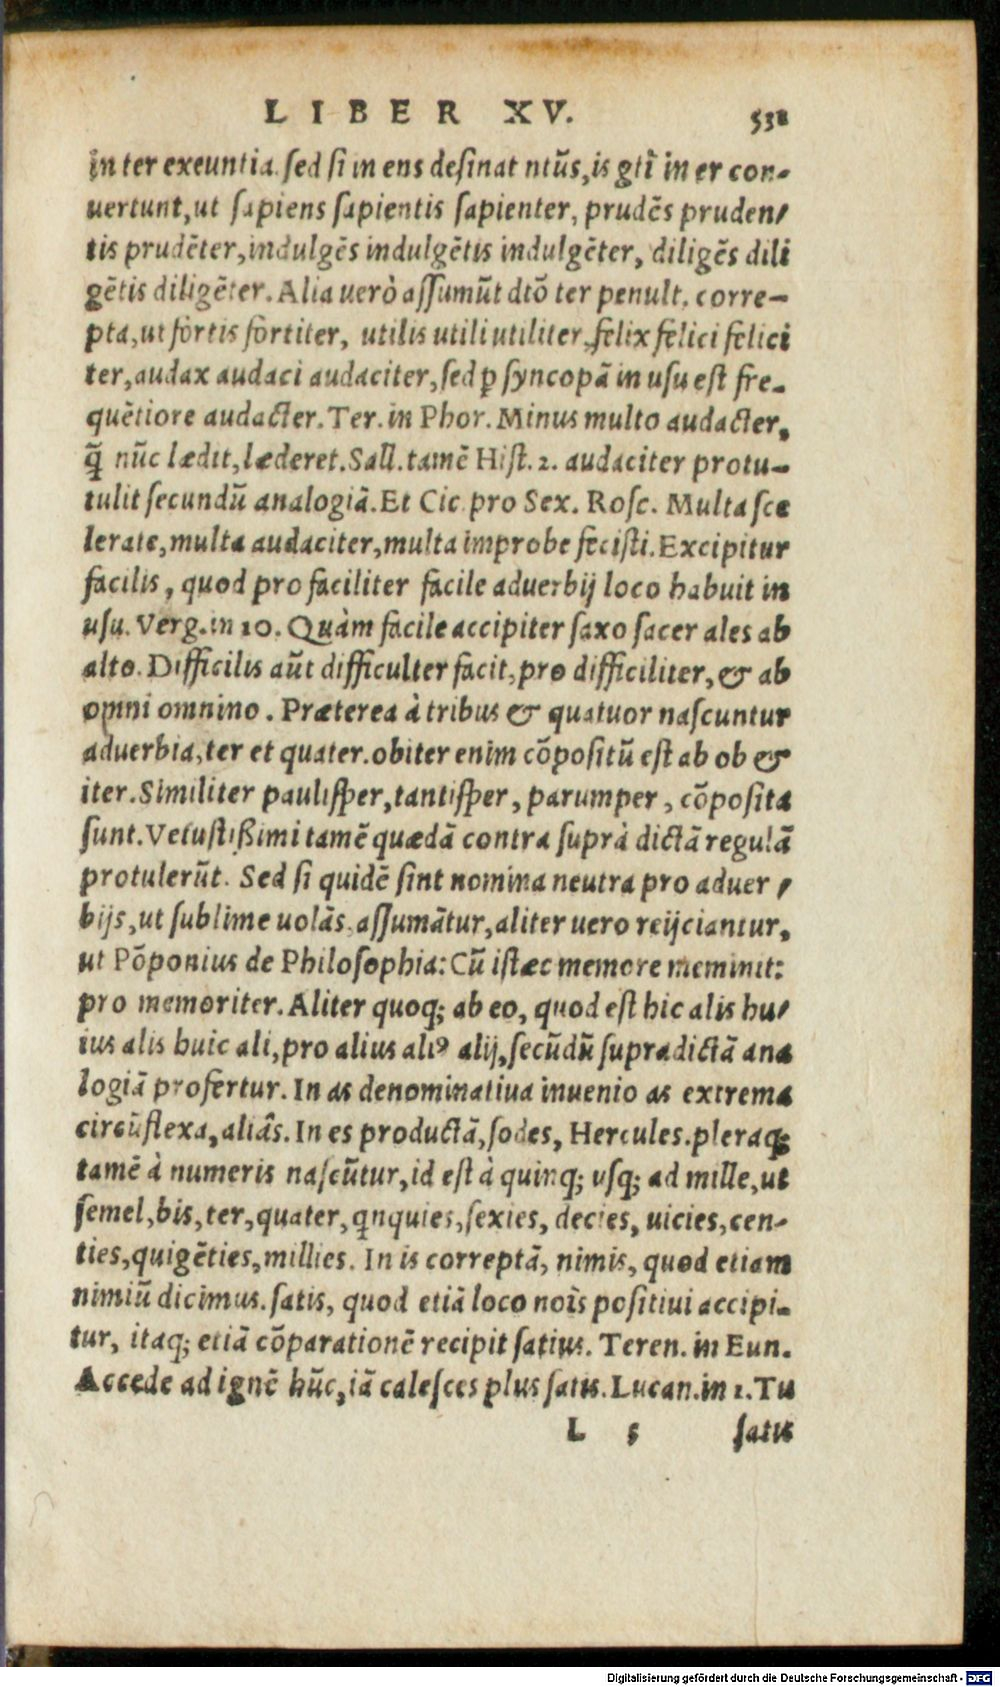 LIBER XV. 538
in ter exeuntia. ſed ſi in ens deſinat ntũs, is gtĩ in er con-
uertunt, ut ſapiens ſapientis ſapienter, prudẽs pruden/
tis prudẽter, indulgẽs indulgẽtis indulgẽter, diligẽs dili
gẽtis diligẽter. Alia uerò aſſumũt dtõ ter penult. corre-
pta, ut fortis fortiter, utilis utili utiliter, felix felici felici
ter, audax audaci audaciter, ſed ꝑ ſyncopã in uſu eſt fre-
quẽtiore audacter. Ter. in Phor. Minus multo audacter,
q̃ nũc lædit, læderet. Sall. tamẽ Hiſt. 2. audaciter protu-
tulit ſecundũ analogiã. Et Cic. pro Sex. Roſc. Multa ſce
lerate, multa audaciter, multa improbe feciſti. Excipitur
facilis, quod pro faciliter facile aduerbij loco habuit in
uſu. Verg. in 10. Quàm facile accipiter ſaxo ſacer ales ab
alto. Difficilis aũt difficulter facit, pro difficiliter, & ab
omni omnino. Præterea à tribus & quatuor naſcuntur
aduerbia, ter et quater. obiter enim cõpoſitũ eſt ab ob &
iter. Similiter pauliſper, tantiſper, parumper, cõpoſita
ſunt. Vetuſtißimi tamẽ quædã contra ſuprà dictã regulã
protulerũt. Sed ſi quidẽ ſint nomina neutra pro aduer /
bijs, ut ſublime uolãs, aſſumãtur, aliter uero reijciantur,
ut Põponius de Philoſophia: Cũ iſtæc memore meminit:
pro memoriter. Aliter quoq; ab eo, quod eſt hic alis hu/
ius alis huic ali, pro alius aliꝰ alij, ſecũdũ ſupradictã ana
logiã profertur. In as denominatiua inuenio as extrema
circũflexa, aliâs. In es productã, ſodes, Hercules. pleraq;
tamẽ à numeris naſcũtur, id eſt à quinq; uſq; ad mille, ut
ſemel, bis, ter, quater, qnquies, ſexies, decies, uicies, cen-
ties, quigẽties, millies. In is correptã, nimis, quod etiam
nimiũ dicimus. ſatis, quod etiã loco noĩs poſitiui accipi-
tur, itaq; etiã cõparationẽ recipit ſatius. Teren. in Eun.
Accede ad ignẽ hũc, iã caleſces plus ſatis. Lucan. in 1. Tu
L 5 ſatis
Digitalisierung gefördert durch die Deutsche Forschungsgemeinschaft - DFG